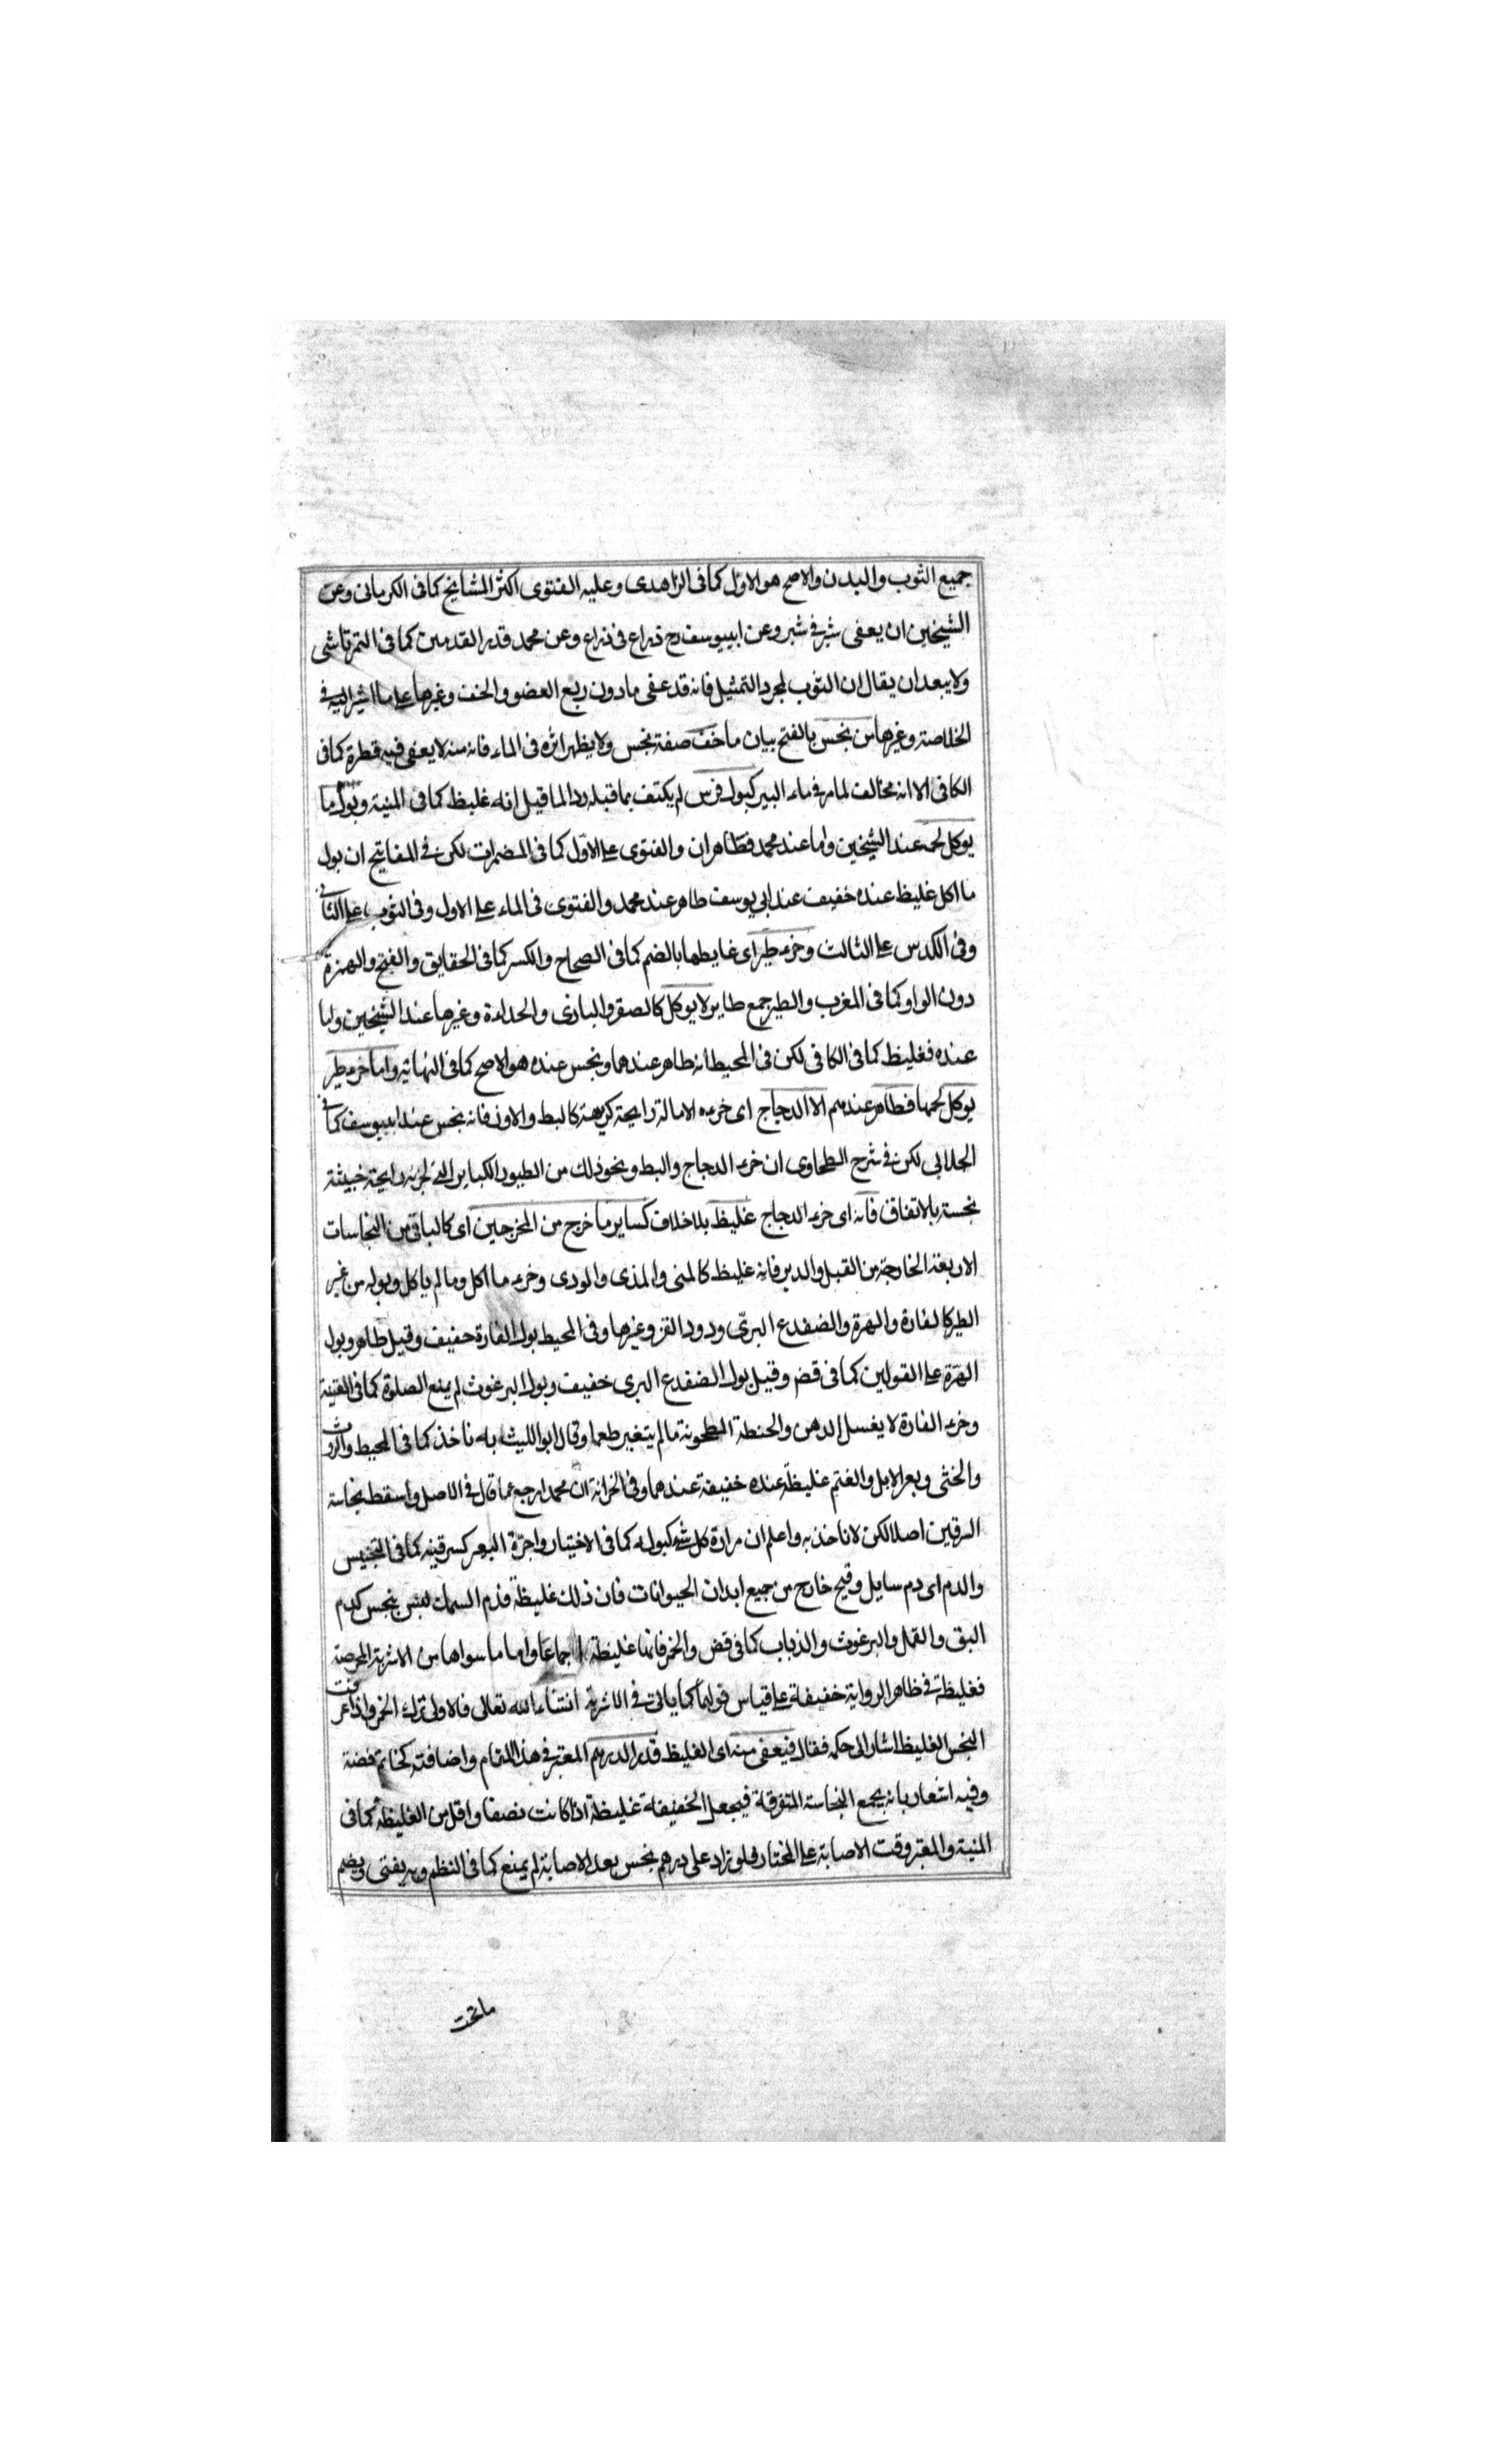 جميع الثوب والبدن والاصح هو الاول كما فى الزاهدى وعليه الفتوى اكثر المشايخ كما فى الكرمانى وعن
الشيخين ان يعفى شبر فى شبر وعن ابييوسف رح ذراع فى ذراع وعن محمد قدر القدمين كما فى التمرتاشى
ولا يبعد ان يقال ان الثوب لمجرد التمثيل فانه قد عفى ما دون ربع العضو والخف وغيرها على ما اشير اليه فى
الخلاصة وغيرها من نجس بالفتح بيان ما خف صفة نجس ولا يظهر اثره فى الماء فانه منه لا يعفى فيه قطرة كما فى
الكافى الا انه مخالف لما مر فى ماء البير كبول فرس لم يكتف بما قبله رد الما قيل انه غليظ كما فى المنية وبول ما
يوكل لحمه عند الشيخين واما عند محمد فطاهران والفتوى على الاول كما فى المضمرات لكن فى المفاتيح ان بول
ما اكل غليظ عنده خفيف عند ابي يوسف طاهر عند محمد والفتوى فى الماء على الاول وفى الثوب على الثانى
وفى الكدس على الثالث وخرء طير اى غايطها بالضم كما فى الصحاح والكسر كما فى الحقايق والفتح والهمزة
دون الواو كما فى المغرب والطير جمع طاير لا يوكل كالصقر والبازى والحداءة وغيرها عند الشيخين واما
عنده فغليظ كما فى الكافى لكن فى المحيط انه طاهر عندهما ونجس عنده هو الاصح كما فى النهاية واما خرء طير
يوكل لحمها فطاهر عندهم الا الدجاج اى خرءه الا ماله رايحة كريهة كالبط والاوز فانه نجس عند ابييوسف كما فى
الجلابى لكن فى شرح الطحاوى ان خرء الدجاج والبط ونحو ذلك من الطيور الكباير التى لخرئه رايحة خبيثة
نجسة بالاتفاق فانه اى خرء الدجاج غليظ بلا خلاف كساير ما خرج من المخرجين اى كالباقى من النجاسات
الاربعة الخارجة من القبل والدبر فانه غليظ كالمنى والمذى والودى وخرء ما اكل وما لم ياكل وبوله من غير
الطير كالفارة والهرة والضفدع البرى ودود القز وغيرها وفى المحيط بول الفارة خفيف وقيل طاهر وبول
الهرة على القولين كما فى قض وقيل بول الضفدع البرى خفيف وبول البرغوث لم يمنع الصلوة كما فى القنية
وخرء الفارة لا يغسل الدهن والحنطة المطحونة ما لم يتغير طعما وقال ابو الليث به ناخذ كما فى المحيط والروث
والخثى وبعر الابل والغنم غليظة عنده خفيفة عندهما وفى الخزانة ان محمدا رجع عما قال فى الاصل واسقط نجاسة
السرقين اصلا لكن لا ناخذ به واعلم ان مرارة كل شئ كبوله كما فى الاختيار واجرة البعير كسرقينه كما فى التجنيس
والدم اى دم سايل وقيح خارج من جميع ابدان الحيوانات فان ذلك غليظة فدم السمك ليس بنجس كدم
البق والقمل والبرغوث والذباب كما فى قض والخمر فانها غليظة اجماعا واما ما سواها من الاشربة المحرمة
فغليظة فى ظاهر الرواية خفيفة على قياس قولهما كما ياتى فى الاشربة انشاء الله تعالى فالاولى ترك الخمر واذا عرفت
النجس الغليظ اشار الى حكمه فقال فيعفى منه اى الغليظ قدر الدرهم المعتبر فى هذا المقام واضافته كخاتم فضة
وفيه اشعار بانه يجمع النجاسة المتفرقة فيجعل الخفيفة غليظة اذا كانت نصفا واقل من الغليظة كما فى
المنية والمعتبر وقت الاصابة على المختار فلو زاد على درهم نجس بعد الاصابة لم يمنع كما فى النظم وبه يفتى ويضم
ما تحت